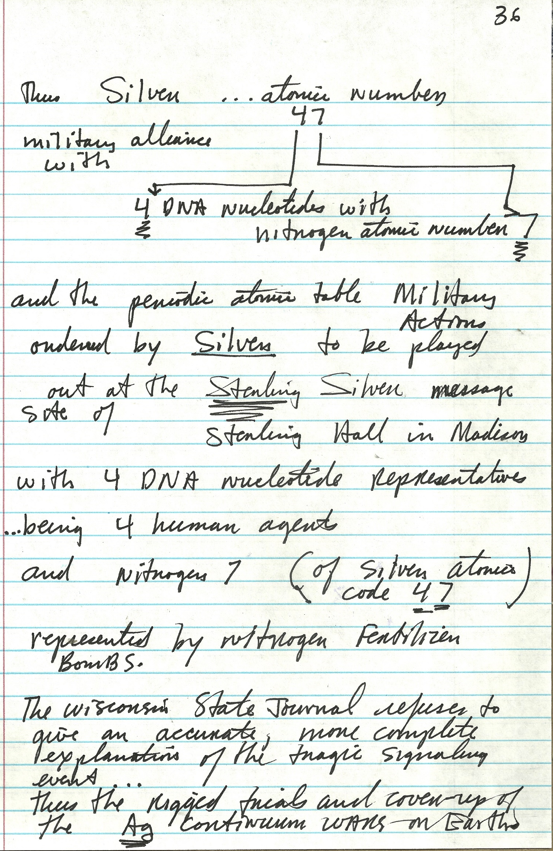 36
Thus Silver ... atomic number
47
military alliance
with
4 DNA nucleotides with
nitrogen atomic number 7
and the periodic atomic table Military
Actions
ordered by Silver to be played
out at the Sterling Silver message
site of
Sterling Hall in Madison
with 4 DNA nucleotide representatives
...being 4 human agents
and nitrogen 7 (of Silver atomic
code 47)
represented by nitrogen Fertilizer
BomBS.
The Wisconsin State Journal refuses to
give an accurate, more complete
explanation of the tragic signaling
event....
thus the rigged trials and cover-up of
the Ag continuum wars on Earth